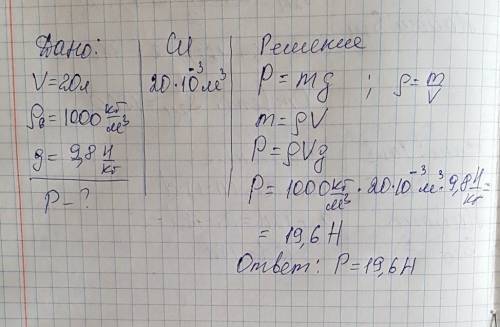 Дано:
V=20л
ρв=1000 кг/м³
g=9,8 Н/кг
P-?
СИ
20·10⁻³м³
Решение
P=mg ; ρ=m/V
m=ρV
P=ρVg
P=1000 кг/м³ · 20·10⁻³м³·9,8 Н/кг=
= 19,6 Н
Ответ: P=19,6 Н